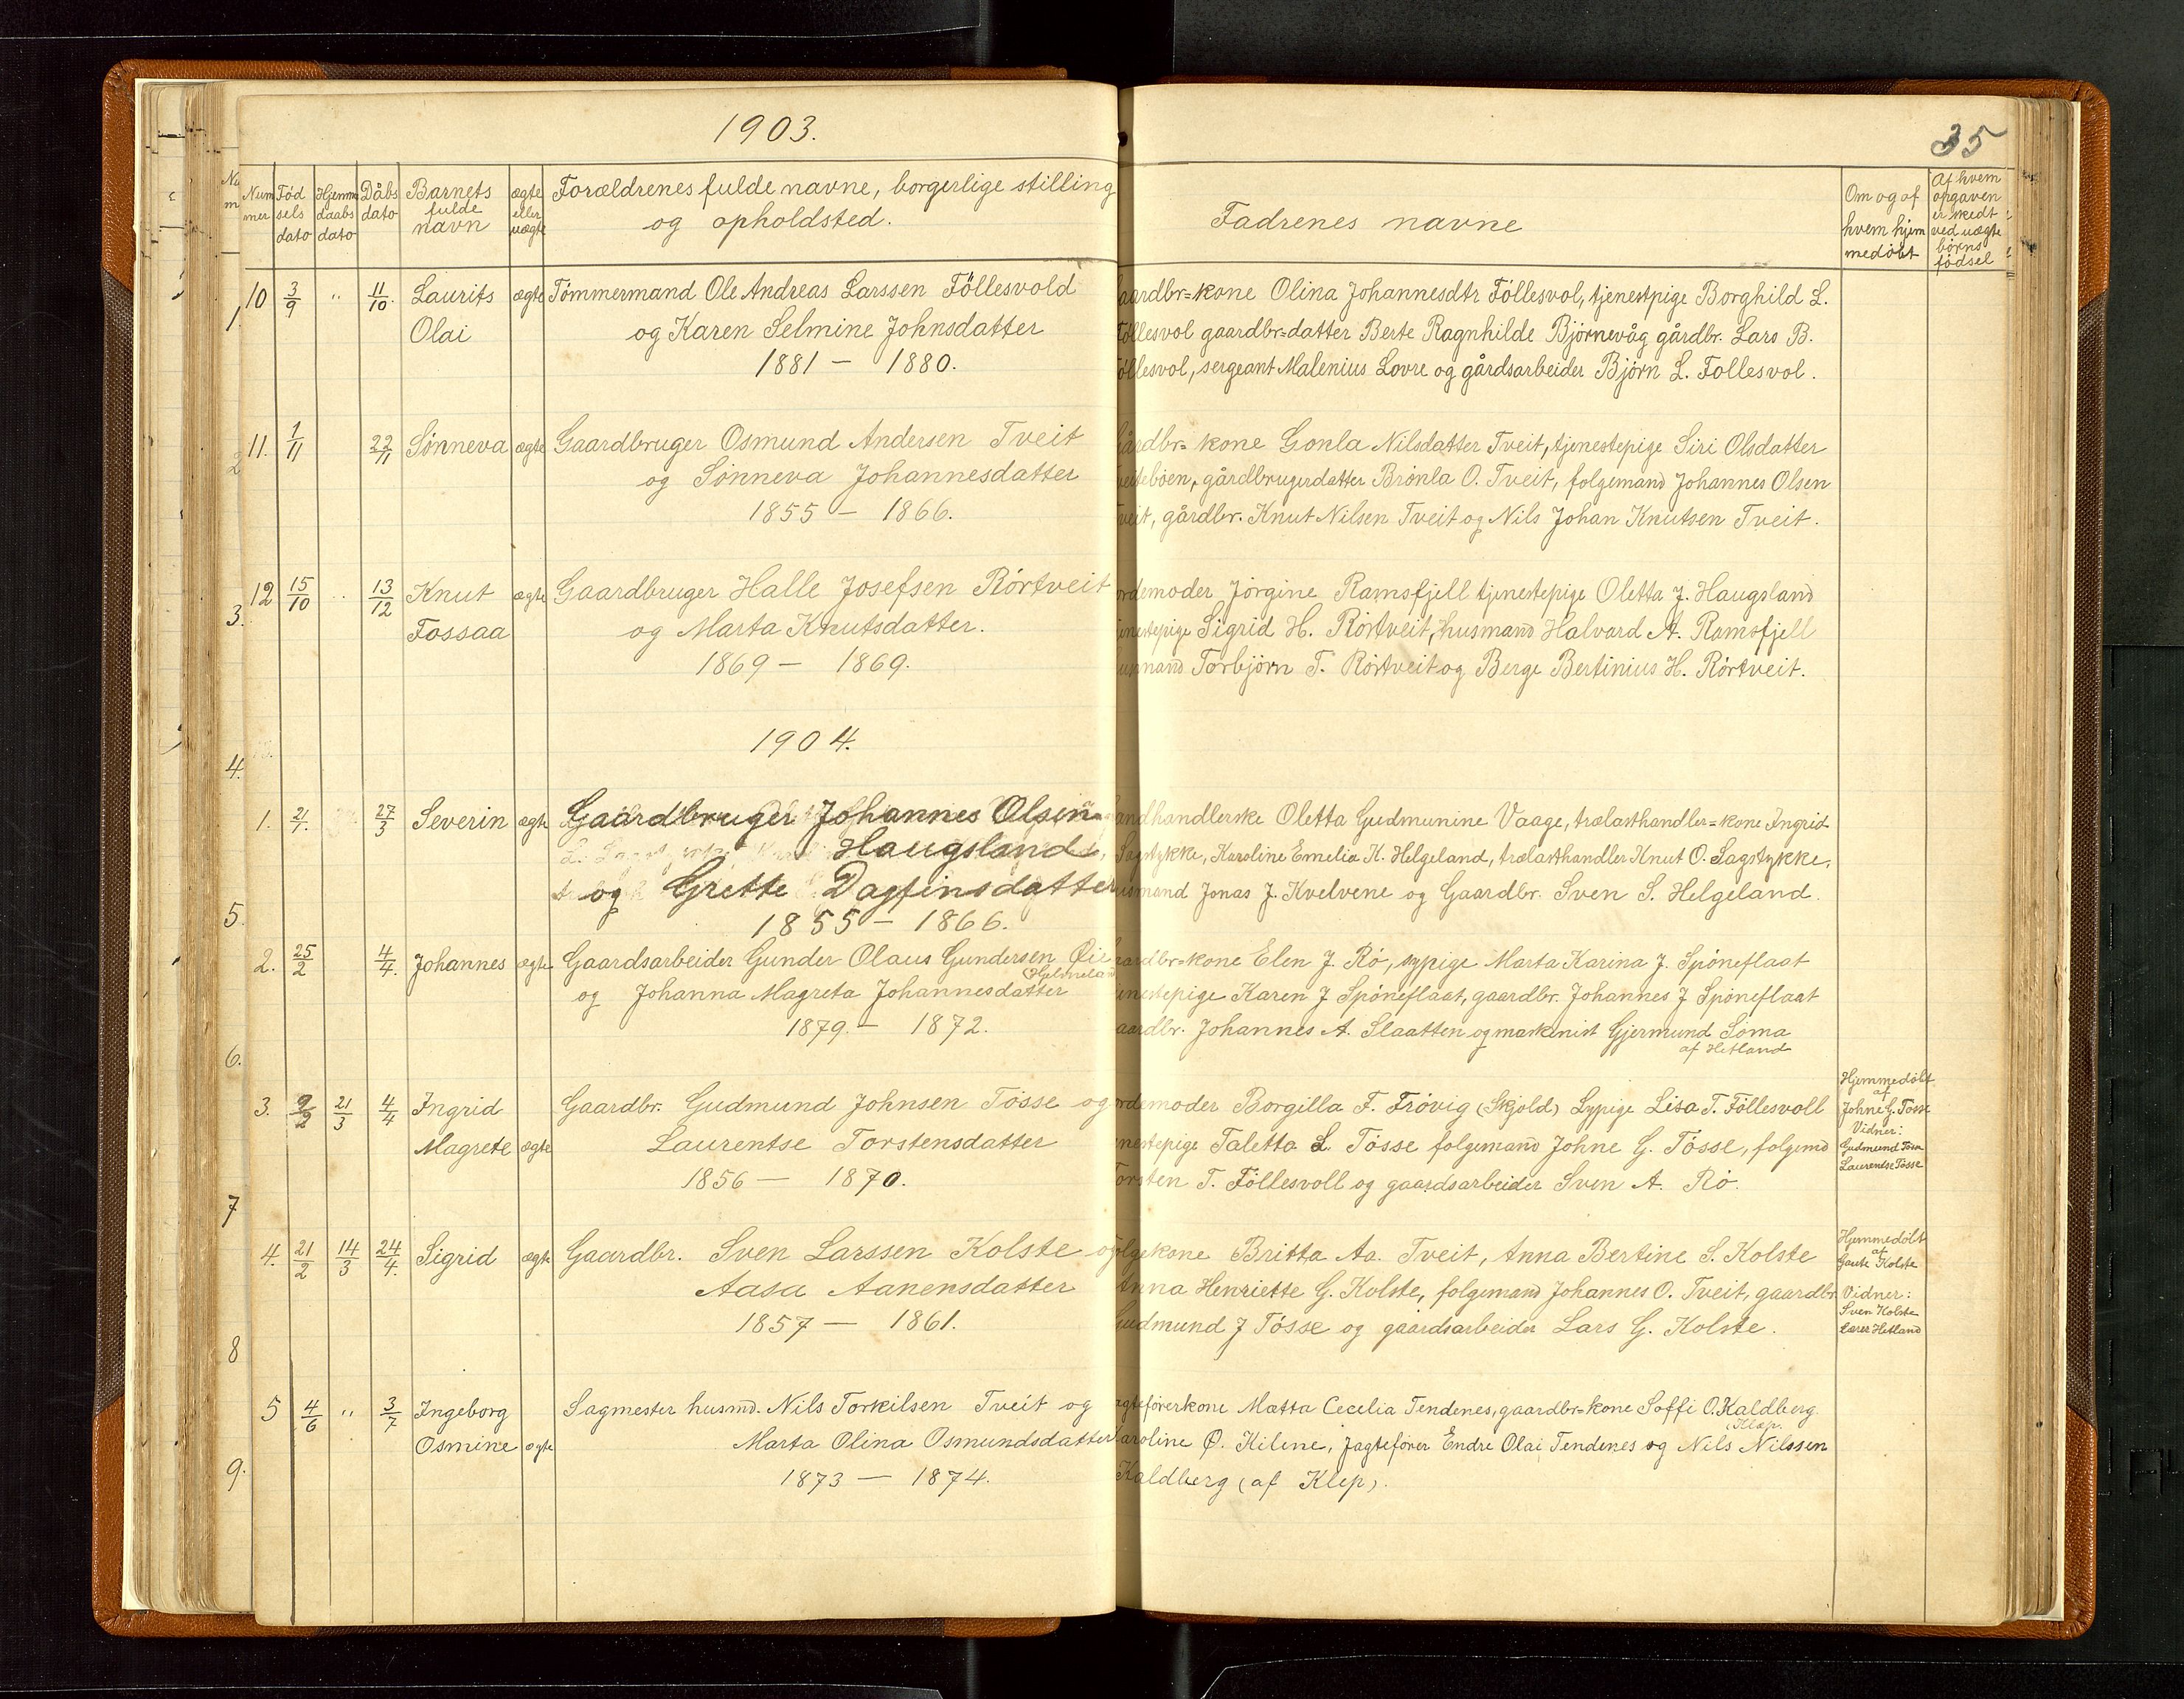 1903.
35
Nummer
Fødselsdato
Hjemmedaabsdato
Dåbsdato
Barnets fulde navn
ægte eller uægte
Forældrenes fulde navne, borgerlige stilling
og opholdsted.
Fadrenes navne
Om og af hvem hjemmedøbt
Af hvem opgaven er skedt ved uægte børns fødsel
10 3/9 " 11/10. Laurits ægte Tømmermand Ole Andreas Larssen Föllesvold
Olai og Karen Selmine Johnsdatter
1881 – 1880.
aardbr=kone Olina Johannesdtr Föllesvol, tjenestpige Borghild L.
Föllesvol gaardbr=datter Berte Ragnhilde Björnevåg gårdbr. Lars B.
öllesvol, sergeant Malenius Lovre og gårdsarbeider Björn L. Follesvol.
11. 1/11 22/11 Sönneva ægte Gaardbruger Osmund Andersen Tveit
og Sönneva Johannesdatter
1855 – 1866.
årdbr= kone Gonla Nilsdatter Tveit, tjenestepige Siri Olsdatter
veitebøen, gårdbrugerdatter Brönla O. Tveit, folgemand Johannes Olsen
veit, gårdbr. Knut Nilsen Tveit og Nils Johan Knutsen Tveit.
12 15/10 " 13/12 Knut ægte Gaardbruger Halle Josefsen Rörtveit
Fossaa og Marta Knutsdatter.
1869 – 1869.
ordemoder Jörgine Ramsfjell tjenestepige Oletta J. Haugsland
jenestepige Sigrid H. Rörtveit, husmand Halvard A. Ramsfjell
usmand Torbjörn T. Rörtveit og Berge Bertinius H. Rörtveit.
1904.
1. 21/1. 27/3 Severin ægte Gaardbruger Johannes Olsen
Haugsland
og Grette Dagfinsdatter
1855 – 1866.
andhandlerske Oletta Gudmunine Vaage, trælasthandler=kone Ingrid
Sagstykke, Karoline Emelia K. Helgeland, trælasthandler Knut O. Sagstykke,
usmand Jonas J. Kvelvene og Gaardbr. Sven S. Helgeland.
2. 25/2 4/4. Johannes ægte Gaardsarbeider Gunder Olaus Gundersen Øie
og Johanna Magreta Johannesdatter
1879. – 1872.
aardbr=kone Elen J. Rö, sypige Marta Karina J. Spöneflaat
jenestepige Karen J Spöneflaat, gaardbr. Johannes J Spöneflaat
aardbr. Johannes A. Slaatten og maskenist Gjermund Söma
af Hetland
3. 9/2 21/3 4/4 Ingrid Gaardbr. Gudmund Johnsen Tösse og
Magrete ægte Laurentse Torstensdatter
1856 – 1870.
ordemoder Borgilla F. Frövig (Skjold) Sypige Lisa T. Föllesvoll
enestepige Taletta L. Tösse folgemand Johne G. Tösse, folgemd
Torsten T. Föllesvoll og gaardsarbeider Sven A. Rö.
Hjemmedöbt
af
Johne G. Tösse
Vidner:
Gudmund Tösse
Laurentse Tösse
4. 21/2 14/3 24/4. Sigrid ægte Gaardbr. Sven Larssen Kolste og
Aasa Aanensdatter
1857 – 1861.
olgekone Britta Aa. Tveit, Anna Bertine S. Kolste
Anna Henriette G. Kolste, folgemand Johannes O. Tveit, gaardbr.
Gudmund J Tösse og gaardsarbeider Lars G. Kolste.
Hjemmedöbt
af
Gaute Kolste
Vidner:
Sven Kolste
Lærer Hetland
5 4/6 " 3/7 Ingeborg Sagmester husmd. Nils Torkilsen Tveit og
Osmine ægte Marta Olina Osmundsdatter
1873 – 1874.
agteförerkone Mætta Cecelia Tendenes, gaardbr=kone Soffi O. Kaldberg
Klep.
Karoline Ø. Kilene, Jagtefører Endre Olai Tendenes og Nils Nilssen
Kaldberg (af Klep).